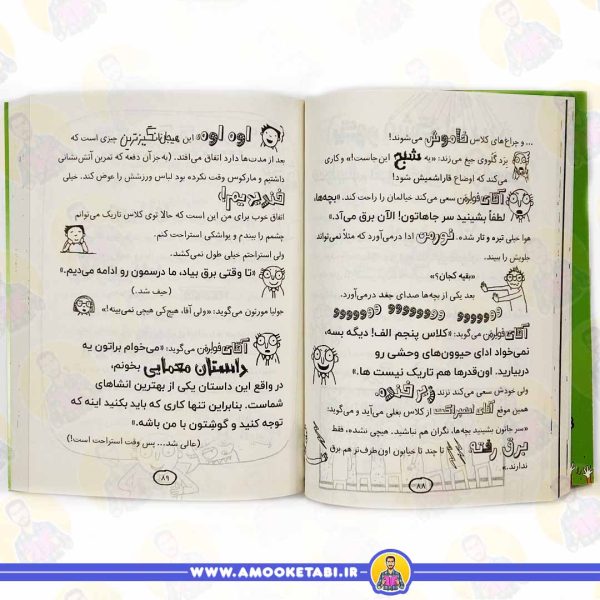 ... و چراغ‌های کلاس خاموش می‌شوند!
برد گلُووی جیغ می‌زند: «یه شبح این‌جاست!» و کاری
می‌کند که اوضاع قاراشمیش شود!
آقای فولرمن سعی می‌کند خیالمان را راحت کند. «بچه‌ها،
لطفاً بشینید سر جاهاتون! الآن برق می‌آد.»
هوا خیلی تیره و تار شده. نورمن ادا درمی‌آورد که مثلاً نمی‌تواند
جلویش را ببیند.
«بقیه کجان؟»
بعد یکی از بچه‌ها صدای جغد درمی‌آورد.
آقای فولرمن می‌گوید: «کلاس پنجم الف! دیگه بسه،
نمی‌خواد ادای حیوون‌های وحشی رو
دربیارید. اون‌قدرها هم تاریک نیست ها.»
ولی خودش سعی می‌کند نزند زیر خنده.
همین موقع آقای از کلاس بغلی می‌آید و می‌گوید:
«سر جاتون بشینید بچه‌ها، نگران هم نباشید. هیچی نشده، فقط
برق رفته. تا چند تا خیابون اون‌طرف‌تر هم برق
ندارند.»
۸۸
اوه اوه! این هیجان‌انگیزترین چیزی است که
بعد از مدت‌ها دارد اتفاق می‌افتد. (به‌جز آن دفعه که تمرین آتش‌نشانی
داشتیم و مارکوس وقت نکرده بود لباس ورزشش را عوض کند. خیلی
خندیدیم!)
اتفاق خوب برای من این است که حالا توی کلاس تاریک می‌توانم
چشمم را ببندم و یواشکی استراحت کنم.
ولی استراحتم خیلی طول نمی‌کشد.
«تا وقتی برق بیاد، ما درسمون رو ادامه می‌دیم.»
(حیف شد.)
جولیا مورتون می‌گوید: «ولی آقا، هیچ‌کی هیچی نمی‌بینه!»
آقای فولرمن می‌گوید: «می‌خوام براتون یه
داستان معمایی بخونم،
در واقع این داستان یکی از بهترین انشاهای
شماست. بنابراین تنها کاری که باید بکنید اینه که
توجه کنید و گوشتون با من باشه.»
(عالی شد... پس وقت استراحت است!)
۸۹
WWW.AMOOKETABI.IR